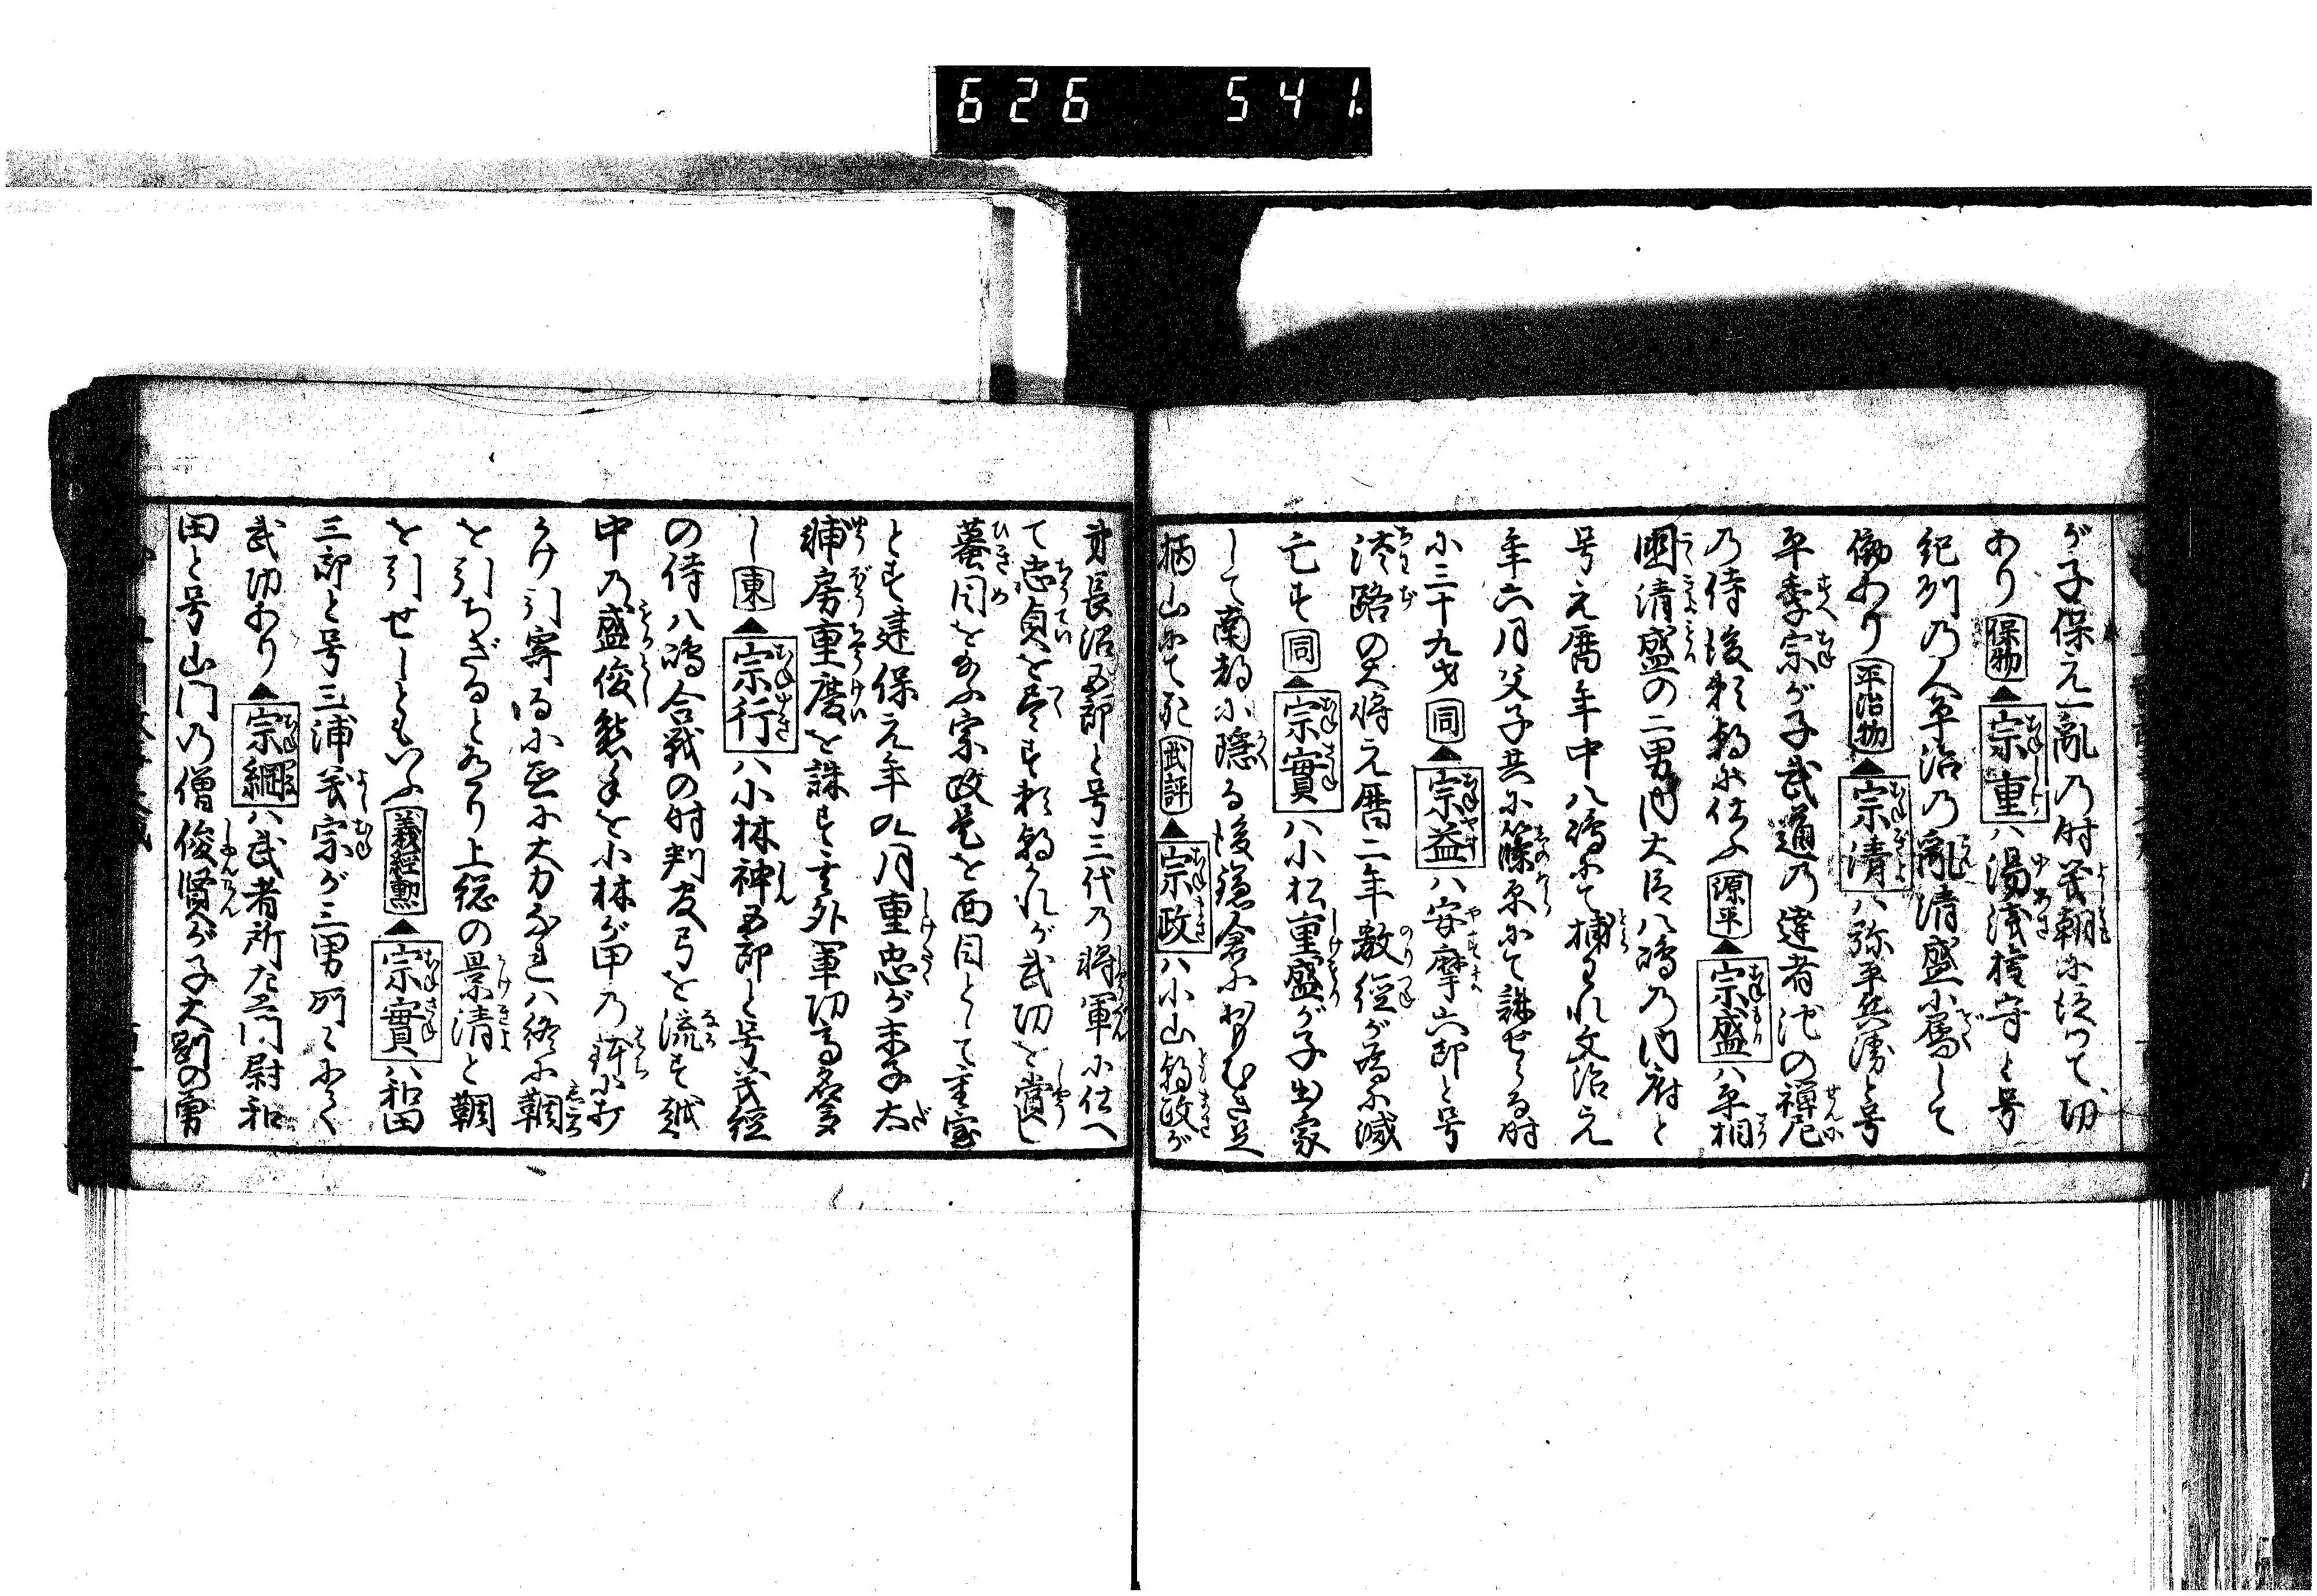 626 541
が子保元乱の時義朝に従つて功
あり保物▲宗重ハ湯浅権守と号
紀刕の人平治の乱清盛に属して
働あり平治物▲宗清ハ弥平兵衛と号
平季宗が子武道の達者池の禅尼
の侍後頼朝に仕ふ源平▲宗盛ハ平相
國清盛の二男内大臣八嶋の内府と
号元暦年中八嶋にて捕られ文治元
年六月父子共に篠原にて誅せらる時
に三十九才同▲宗益ハ安摩六郎と号
淡路の大将元暦二年教経が為に滅
亡す同▲宗實ハ小松重盛が子出家
して南都に隠る後鎌倉におもむき足
柄山にて死武評▲宗政ハ小山朝政が
弟長沼五郎と号三代の将軍に仕へ
て忠貞を尽す頼朝かれが武功を賞し
蟇目を給ふ宗政是を面目として重宝
とす建保元年九月重忠が末子大
輔房重慶を誅す其外軍功高名多
し東▲宗行ハ小林神五郎と号義経
の侍八嶋合戦の時判官弓を流す越
中の盛俊熊手を小林が甲の鉢に打
かけ引寄るに互に大力なれハ終に鞠
を引ちぎるとなり上総の景清と鞠
を引せしともいふ義経勲▲宗實ハ和田
三郎と号三浦義宗が三男所々にて
武功あり▲宗綱ハ武者所左衛門尉和
田と号山門の僧俊賢が子大剛の勇